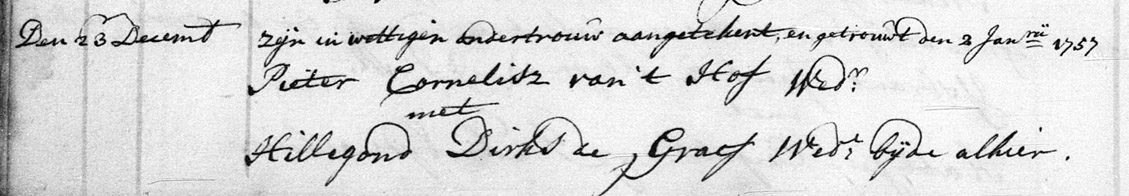 Den 23 Decembr zijn in wettigen ondertrouw aangetekent, en getrouwt den 2 Janrii 1757
Pieter Cornelisz van 't Hof Wedr
met
Hillegond Dirks de Graef Wedr bÿde alhier.